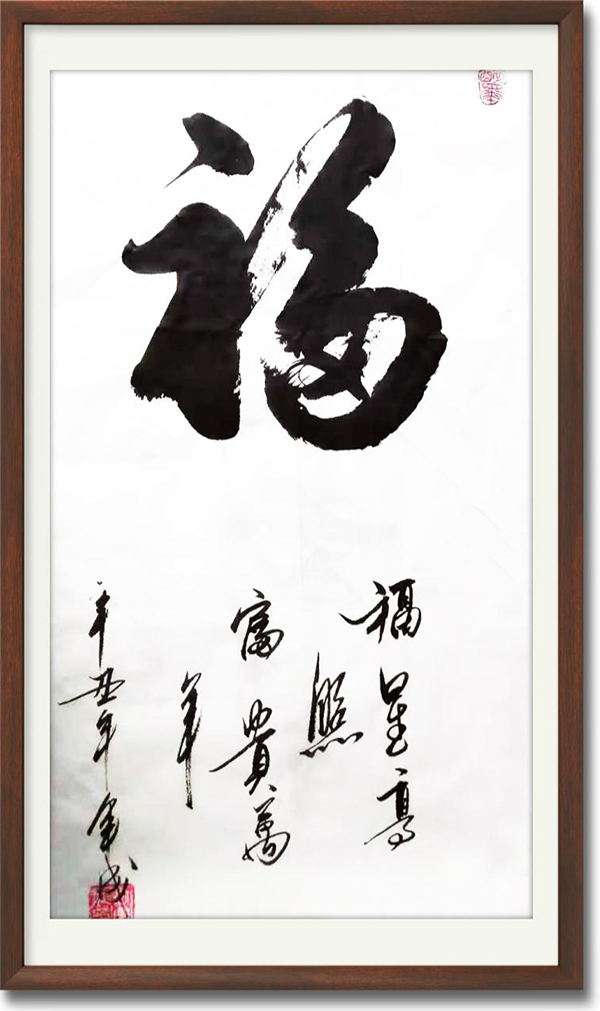 福
福星高
照
富貴萬
年
辛丑年 金成